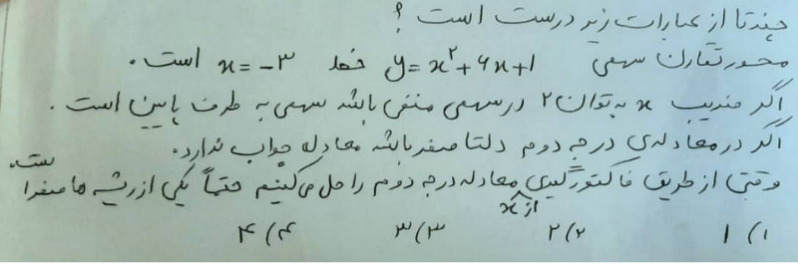 چندتا از عبارات زیر درست است ؟
محور تقارن سهمی y=x²+۶x+1 خط x=-۳ است.
اگر ضریب x به توان ۲ در سهمی منفی باشد سهمی به طرف پایین است.
اگر در معادله‌ی درجه دوم دلتا صفر باشد معادله جواب ندارد.
وقتی از طریق فاکتورگیری از x معادله درجه دوم را حل می‌کنیم حتماً یکی از ریشه ها صفر است.
۱) ۱ ۲) ۲ ۳) ۳ ۴) ۴